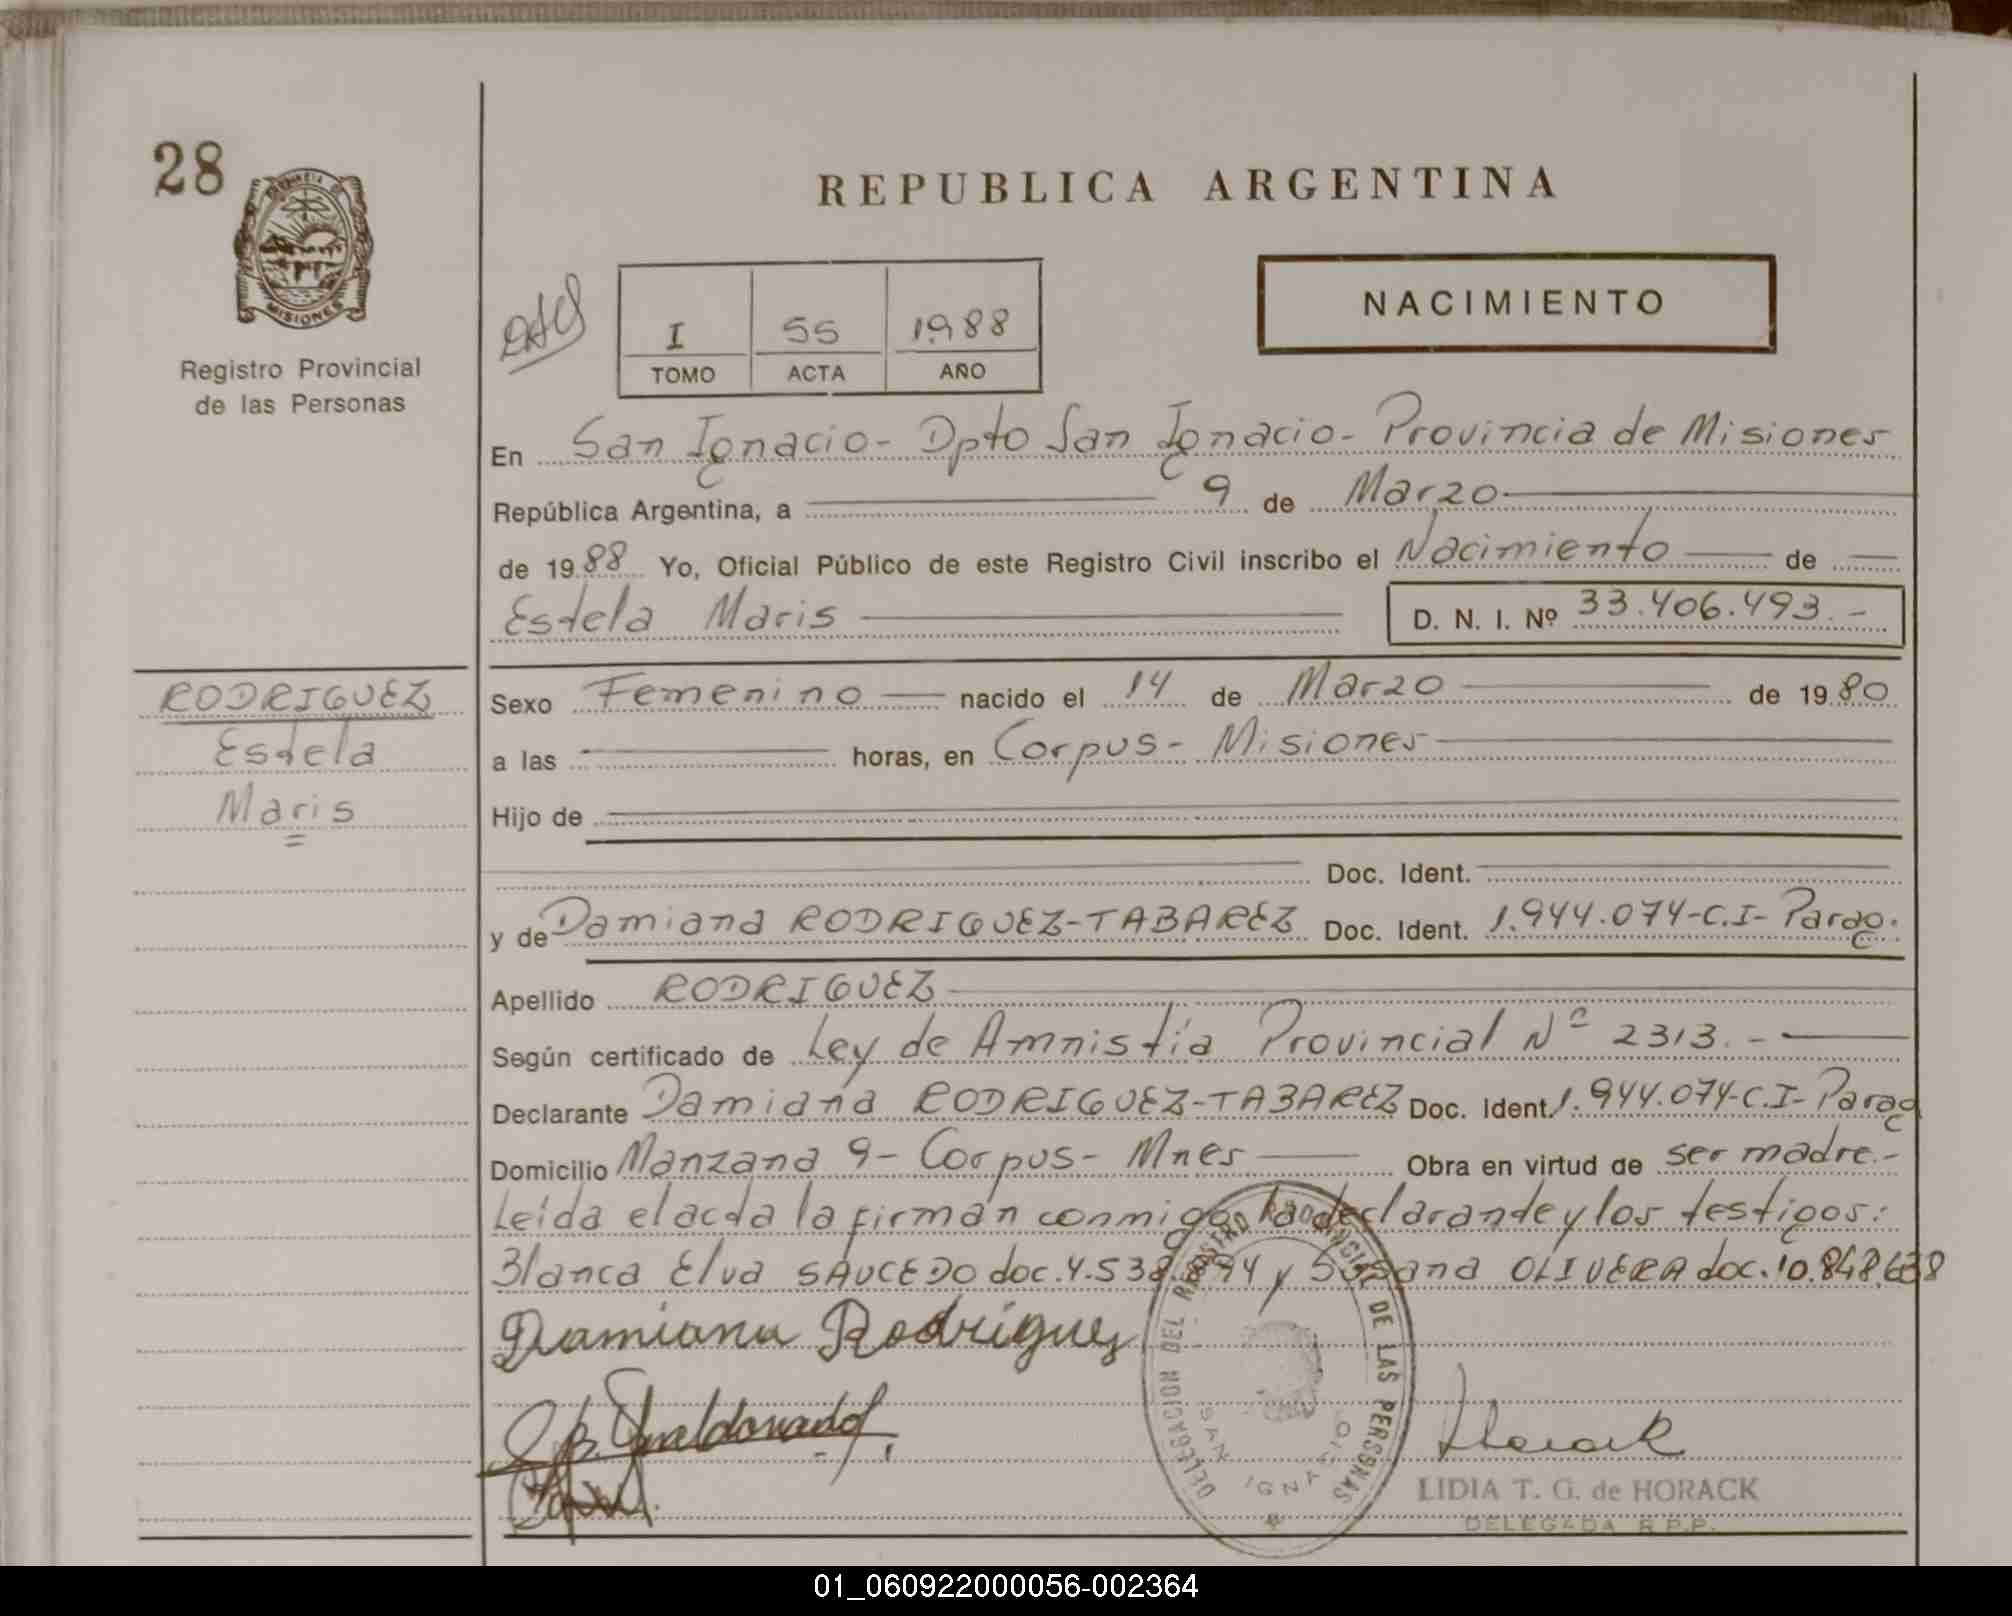 28
PROVINCIA DE
MISIONES
Registro Provincial
de las Personas
REPUBLICA ARGENTINA
NACIMIENTO
I 55 1988
TOMO ACTA AÑO
En San Ignacio - Dpto San Ignacio - Provincia de Misiones
República Argentina, a 9 de Marzo
de 1988 Yo, Oficial Público de este Registro Civil inscribo el Nacimiento de
Estela Maris D. N. I. Nº 33.406.493.-
RODRIGUEZ
Estela
Maris
Sexo Femenino nacido el 14 de Marzo de 1980
a las horas, en Corpus - Misiones
Hijo de
Doc. Ident.
y de Damiana RODRIGUEZ-TABAREZ Doc. Ident. 1.944.074-C.I- Parag.
Apellido RODRIGUEZ
Según certificado de Ley de Amnistía Provincial Nº 2313.-
Declarante Damiana RODRIGUEZ-TABAREZ Doc. Ident. 1.944.074-C.I- Parag
Domicilio Manzana 9- Corpus- Mnes Obra en virtud de ser madre.-
Leída el acta la firman conmigo la declarante y los testigos:
Blanca Elva SAUCEDO doc. y Susana OLIVERA doc. 10.848.638
Damiana Rodriguez
Maldonado
Horack
DELEGACION DEL REGISTRO PROVINCIAL DE LAS PERSONAS
SAN IGNACIO
LIDIA T. G. de HORACK
DELEGADA R.P.P.
01_060922000056-002364